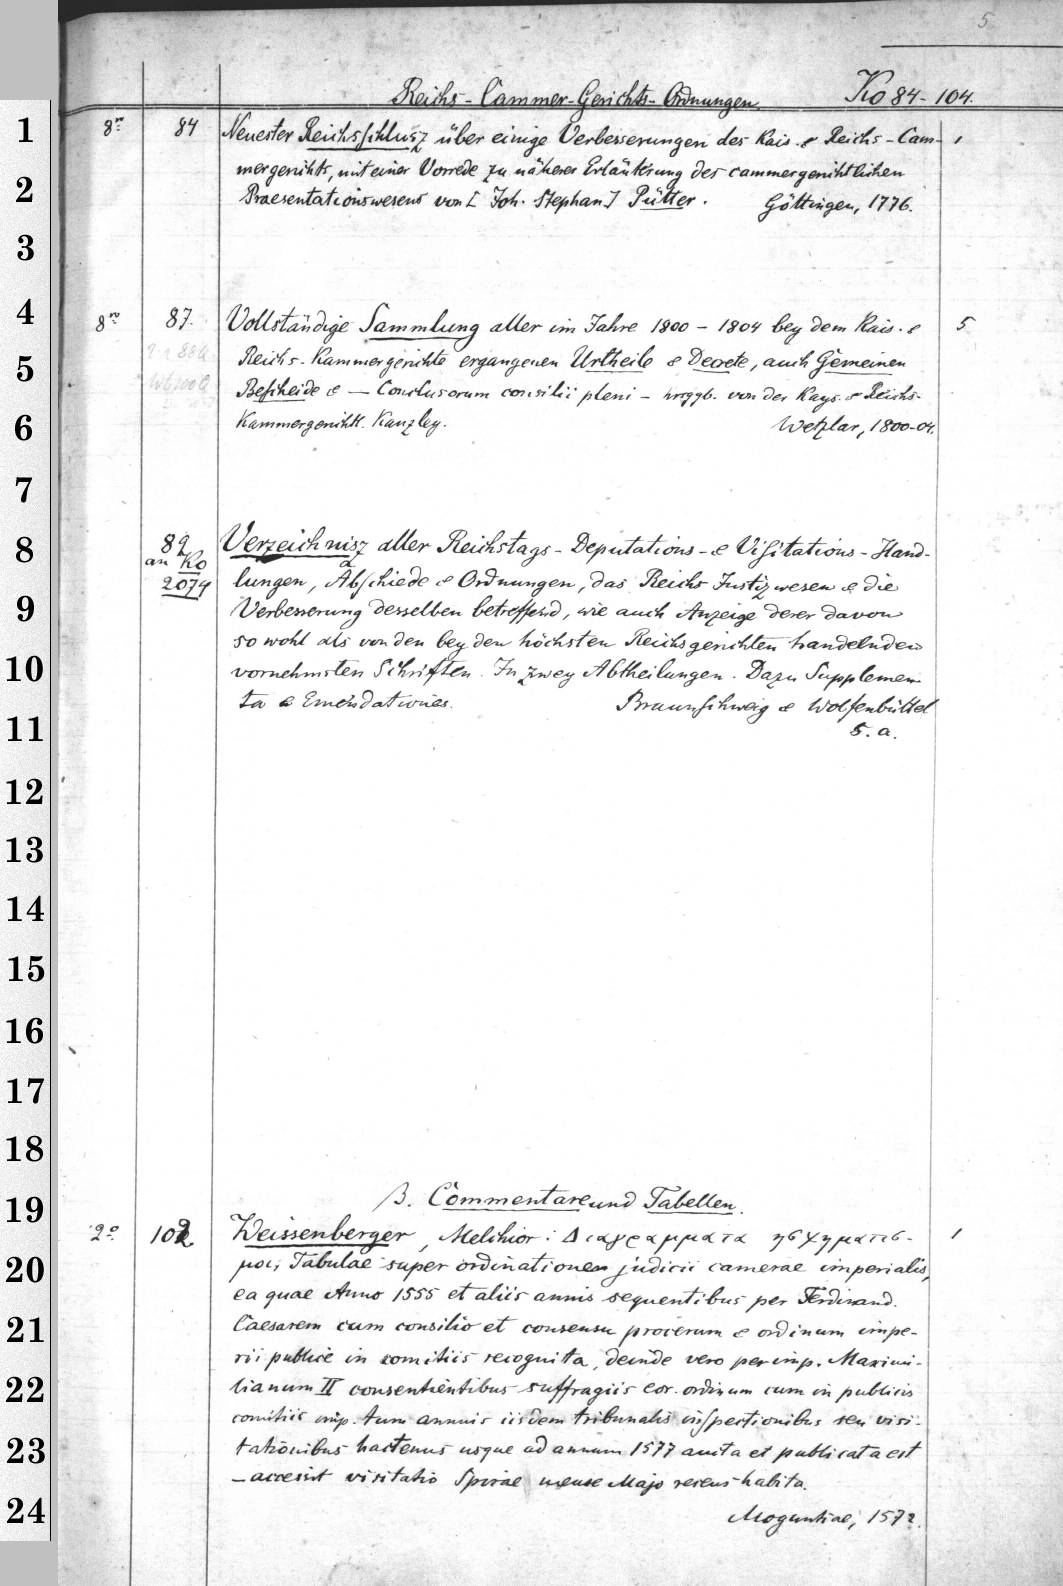 5
Reichs-Cammer-Gerichts-Ordnungen. Ko 84-104.
1
8º 84 Neuester Reichsschlusz über einige Verbesserungen des Kais. & Reichs-Cam- 1
mergerichts, mit einer Vorrede zu näherer Erläuterung des cammergerichtlichen
2
Praesentationswesens von [Joh. Stephan] Pütter. Göttingen, 1776.
3
4
8º 87. Vollständige Sammlung aller im Jahre 1800-1804 bey dem Kais. & 5
5
Reichs-Kammergerichte ergangenen Urtheile & Decrete, auch Gemeinen
Bescheide & — Conclusorum consilii pleni - hrsggb. von der Kays. & Reichs-
6
Kammergerichtl. Kanzley. Wetzlar, 1800-04.
7
8
89 Verzeichnisz aller Reichstags-Deputations-& Visitations-Hand-
an Ko
2074 lungen, Abschiede & Ordnungen, das Reichs Justizwesen & die
9
Verbesserung desselben betreffend, wie auch Anzeige derer davon
so wohl als von den bey den höchsten Reichsgerichten handelnden
10
vornehmsten Schriften. In zwey Abtheilungen. Dazu Supplemen
ta & Emendationes. Braunschweig & Wolfenbüttel
11
s. a.
12
13
14
15
16
17
18
19
B. Commentare und Tabellen.
2º 102 Weissenberger, Melchior: Διαγραμματα ησχηματισ- 1
20
μοι; Tabulae super ordinationem judicii camerae imperialis,
ea quae Anno 1555 et aliis annis sequentibus per Ferdinand.
21
Caesarem cum consilio et consensu procerum & ordinum impe-
rii publice in comitiis recognita, deinde vero per imp. Maximi-
22
lianum II consentientibus suffragiis eor. ordinum cum in publicis
comitiis imp. tum annuis iisdem tribunalis inspectionibus seu visi-
23
tationibus hactenus usque ad annum 1577 aucta et publicata est
—accessit visitatio Spirae mense Majo recens habita.
24
Moguntiae, 1572.